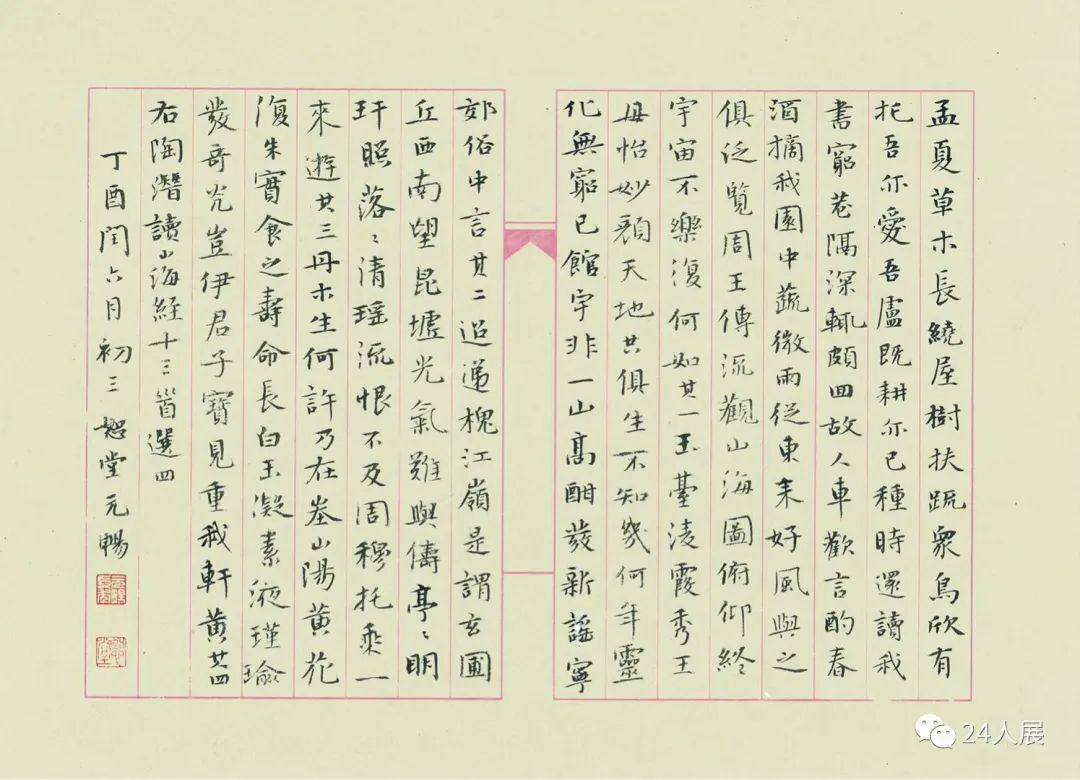 孟夏草木長繞屋樹扶疏衆鳥欣有
托吾亦愛吾廬既耕亦已種時還讀我
書窮巷隔深轍頗回故人車歡言酌春
酒摘我園中蔬微雨從東來好風與之
俱泛覽周王傳流觀山海圖俯仰終
宇宙不樂復何如其一玉臺淩霞秀王
母怡妙顏天地共俱生不知幾何年靈
化無窮已館宇非一山高酣發新謡寧
郊俗中言其二迢遞槐江嶺是謂玄圃
丘西南望昆墟光氣難與儔亭〻明
玕照落〻清瑶流恨不及周穆托乘一
來遊其三丹木生何許乃在峚山陽黄花
復朱實食之壽命長白玉凝素液瑾瑜
發奇光豈伊君子寶見重我軒黄其四
右陶潛讀山海經十三首選四
丁酉閏六月初三恕堂元暢
24人展